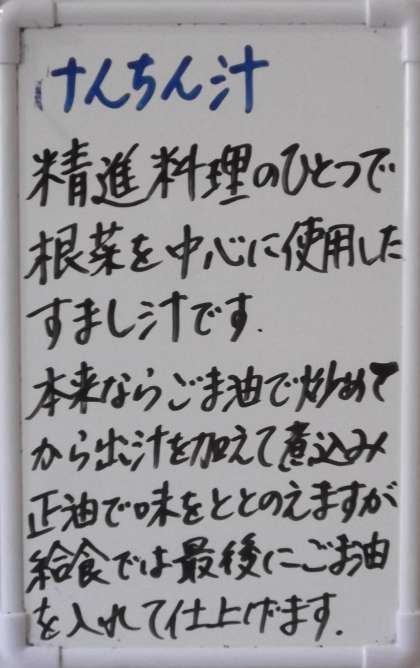 けんちん汁
精進料理のひとつで
根菜を中心に使用した
すまし汁です.
本来ならごま油で炒めて
から出汁を加えて煮込み
正油で味をととのえますが
給食では最後にごま油
を入れて仕上げます.